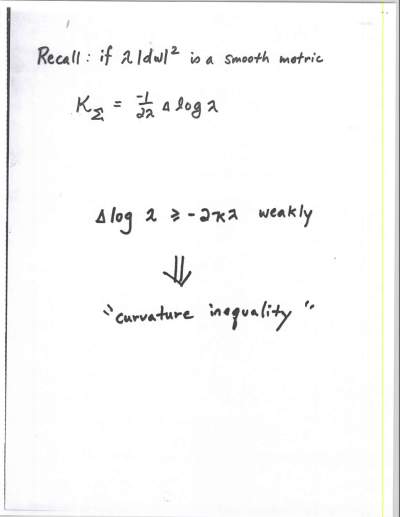 Recall : if λ |dw|² is a smooth metric
K_Σ = -1/2λ Δ log λ
Δ log λ ≥ -2κλ weakly
⇓
"curvature inequality"